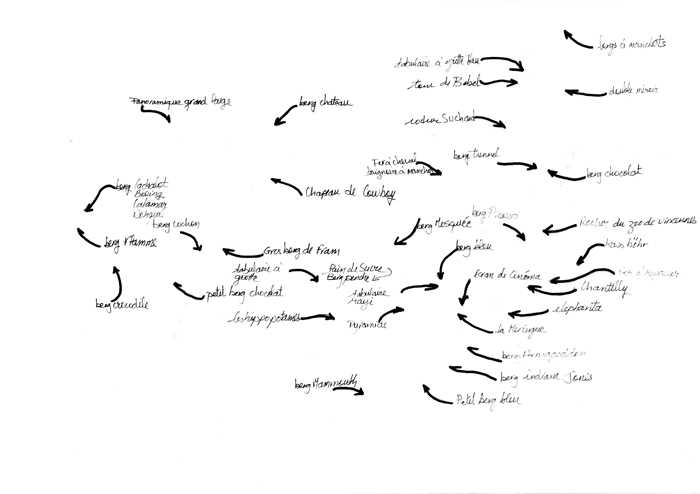 bergs à manchots
tabulaire à
tour de Babel
double miroir
Panoramique grand large
berg château
Suchard
Fer à cheval
baignoire à manchots
berg tunnel
berg chocolat
berg Cachalot
Boeing
Calamar
berg cochon
Chapeau de Cowboy
berg Mosquée
berg Picasso
Rocher du zoo de vincennes
berg Flamme
Gros berg de Fram
berg bleu
tabulaire à
grotte
Pain de Sucre
Berg penché
Ecran de Cinéma
Chantilly
berg crocodile
petit berg chocolat
tabulaire
rayé
elephanta
les hyppopotames
Pyramide
la Meringue
berg Armageddon
berg indiana Jones
berg Mammouth
Petit berg bleu